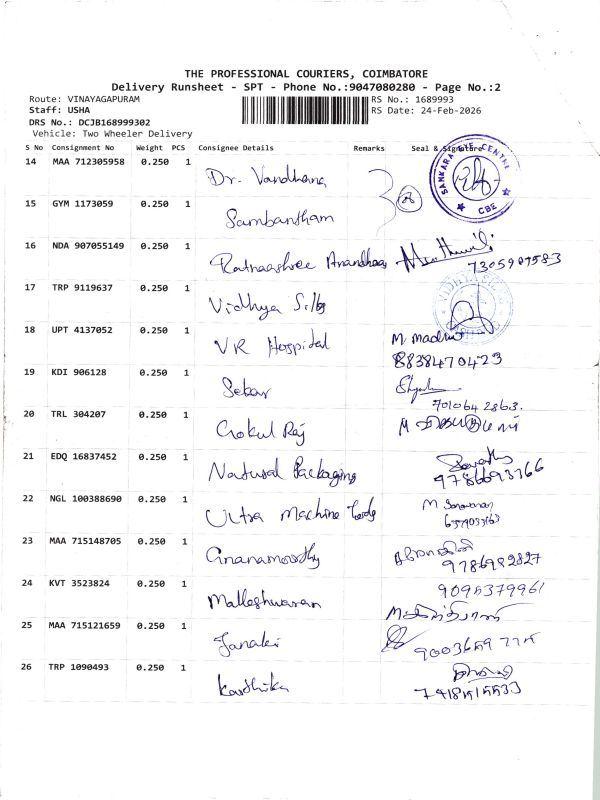 THE PROFESSIONAL COURIERS, COIMBATORE
Delivery Runsheet - SPT - Phone No.:9047080280 - Page No.:2
Route: VINAYAGAPURAM RS No.: 1689993
Staff: USHA RS Date: 24-Feb-2026
DRS No.: DCJB168999302
Vehicle: Two Wheeler Delivery
S No Consignment No Weight PCS Consignee Details Remarks Seal & Signature
SANKARA EYE CENTRE
CBE
14 MAA 712305958 0.250 1 Dr. Vandhana
15 GYM 1173059 0.250 1 Sambantham
16 NDA 907055149 0.250 1 Ratnaashree
17 TRP 9119637 0.250 1 Vidhya Silks
18 UPT 4137052 0.250 1 VR Hospital M. Madhu
8838470423
19 KDI 906128 0.250 1 Sekar
7010642863.
20 TRL 304207 0.250 1 Gokul Raj
21 EDQ 16837452 0.250 1 Natural Packaging
22 NGL 100388690 0.250 1 Ultra Machine Tools M Saravanan
23 MAA 715148705 0.250 1 Gnanamoorthy
9786982827
24 KVT 3523824 0.250 1 Malleshwaran 9095379961
25 MAA 715121659 0.250 1 Janaki
26 TRP 1090493 0.250 1 Karthika